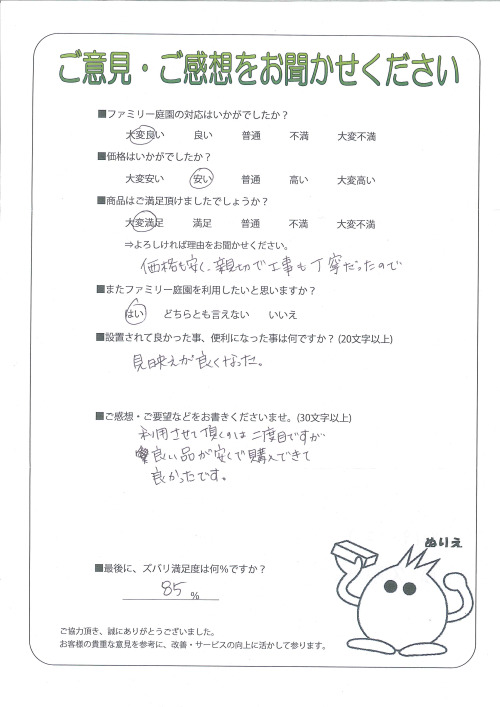 ご意見・ご感想をお聞かせください
■ファミリー庭園の対応はいかがでしたか？
大変良い 良い 普通 不満 大変不満
■価格はいかがでしたか？
大変安い 安い 普通 高い 大変高い
■商品はご満足頂けましたでしょうか？
大変満足 満足 普通 不満 大変不満
⇒よろしければ理由をお聞かせください。
価格も安く、親切で工事も丁寧だったので
■またファミリー庭園を利用したいと思いますか？
はい どちらとも言えない いいえ
■設置されて良かった事、便利になった事は何ですか？(20文字以上)
見映えが良くなった。
■ご感想・ご要望などをお書きくださいませ。(30文字以上)
利用させて頂くのは二度目ですが
良い品が安くで購入できて
良かったです。
ぬりえ
■最後に、ズバリ満足度は何％ですか？
85 %
ご協力頂き、誠にありがとうございました。
お客様の貴重な意見を参考に、改善・サービスの向上に活かして参ります。